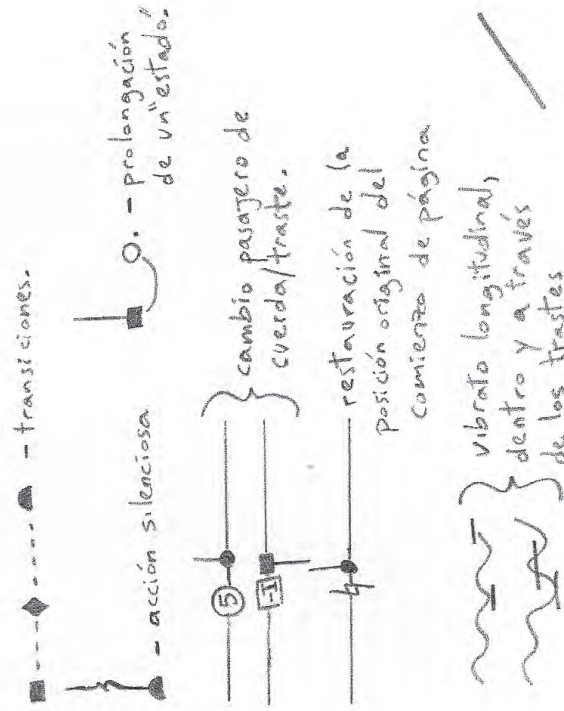 - transiciones.
- acción silenciosa
- prolongación
de un "estado".
5
-I
cambio pasajero de
cuerda/traste.
- restauración de la
posición original del
comienzo de página
vibrato longitudinal,
dentro y a través
de los trastes